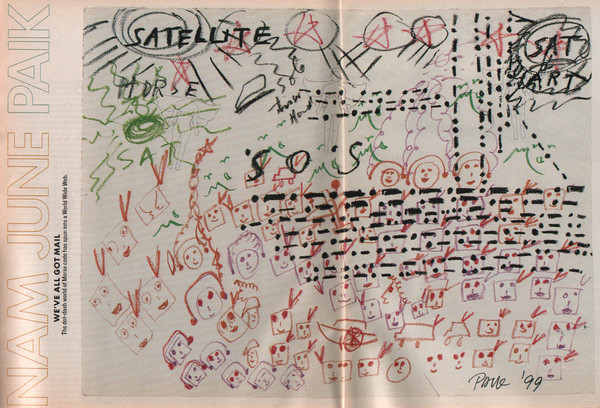 NAM JUNE PAIK
WE'VE ALL GOT MAIL
The dot-dash world of Morse code has spun into a World Wide Web.
SATELLITE
SAT
ART
MORSE
SAT
SOS
Paik '99